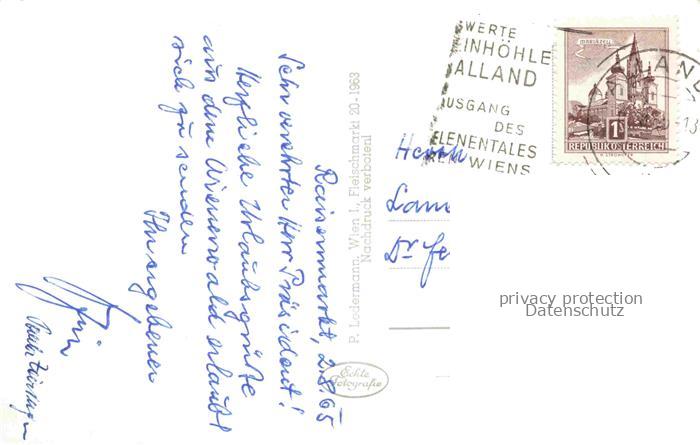 Raisenmarkt, 2.8.65
Sehr verehrter Herr Präsident!
Herzliche Urlaubsgrüße
aus dem Wienerwald erlaubt
sich zu senden
Ihr ergebener
P. Ledermann, Wien I., Fleischmarkt 20 - 1963
Nachdruck verboten!
Echte
Fotografie
SWERTE
EINHÖHLE
ALLAND
AUSGANG
DES
ELENENTALES
WIENS
ALLAND
13
MARIAZELL
1S
REPUBLIK ÖSTERREICH
Herrn
Lan
Dr. Fe
privacy protection
Datenschutz